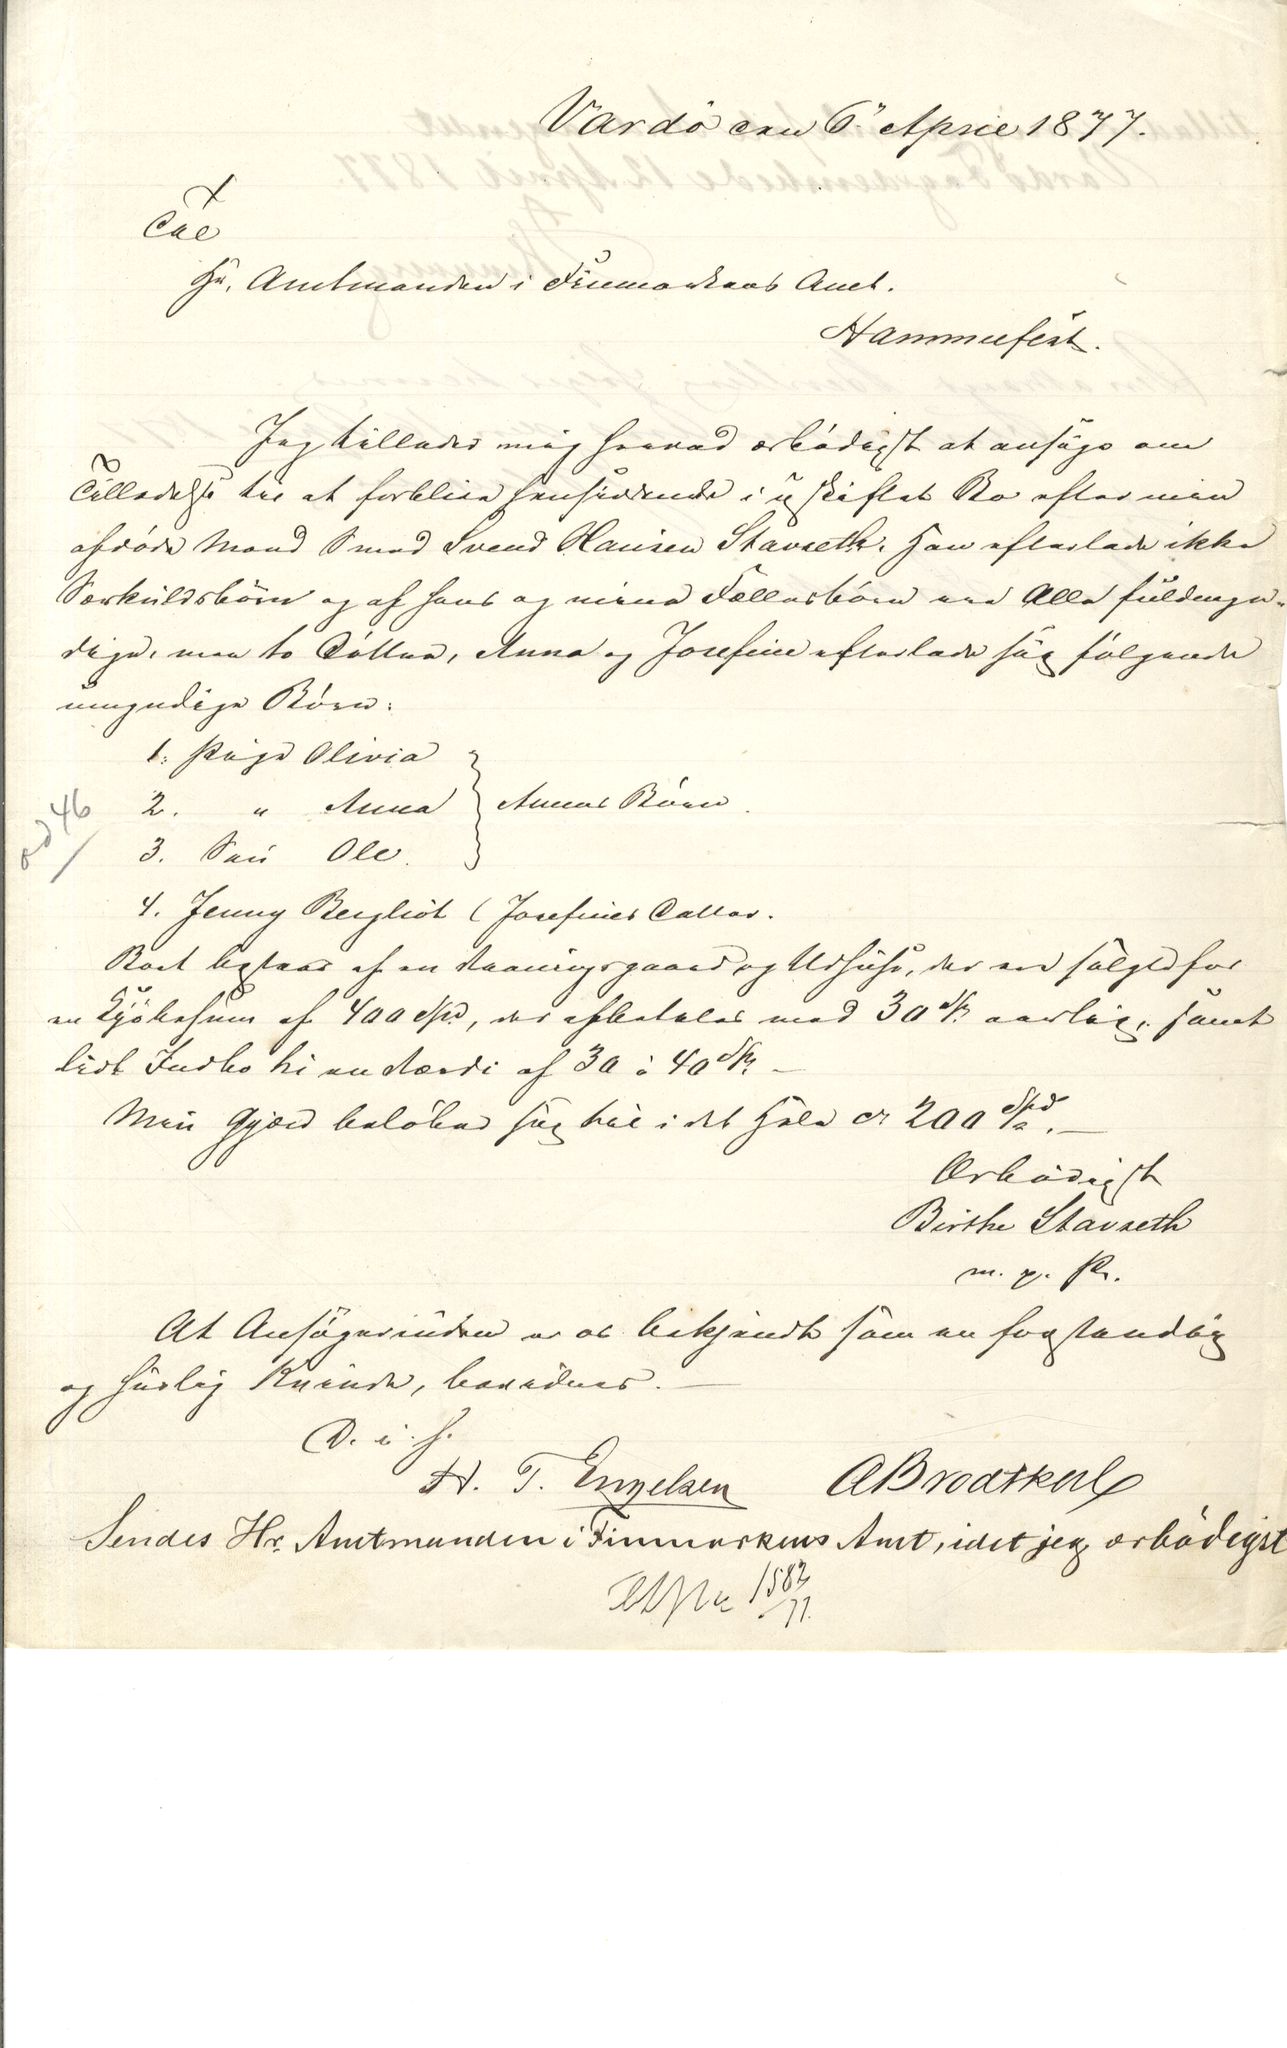 Vardö den 6te April 1877.
Til
Hr. Amtmanden i Finmarkens Amt.
Hammerfest.
Jeg tillader mig herved ærbödigst at ansöge om
Tilladelse til at forblive hensiddende i uskiftet Bo efter min
afdöde Mand Smed Svend Hansen Stavseth. Han efterlod ikke
Særkuldsbörn og af hans og mine Fællesbörn ere Alle fuldmyn-
dige, men to Döttre, Anna og Josefine efterlode sig fölgende
umyndige Börn:
1. Pige Olivia
2. " Anna
Annas Börn.
3. Sön Ole.
4. Jenny Bergliot (Josefines Datter.
ad 46
Boet bestaar af en Vaaningsgaard og Udhuse, der er solgt for
en Kjöbesum af 400 Spd, der afbetales med 30 Sp. aarlig, samt
lidt Indbo til en Værdi af 30 à 40 Sp. —
Min Gjæld belöber sig til i det Hele ca 200 Spd. —
Ærbödigst
Birthe Stavseth
m. p. P.
At Ansögerinden er os bekjendt som en forstandig
og huslig Kvinde, bevidnes. —
D. u. s.
H. T. Engelsen ABrodtkorb
Sendes Hr. Amtmanden i Finmarkens Amt, idet jeg ærbödigst
1582
/77.